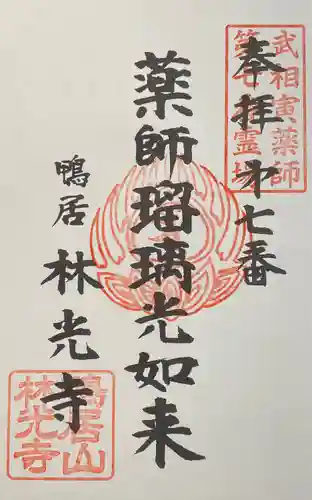 武相寅薬師
第七霊場
奉拝 第七番
薬師瑠璃光如来
鴨居
林光寺
鴨居山
林光寺